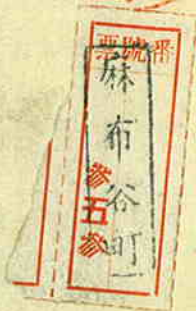 番號票
麻布谷町
参五参